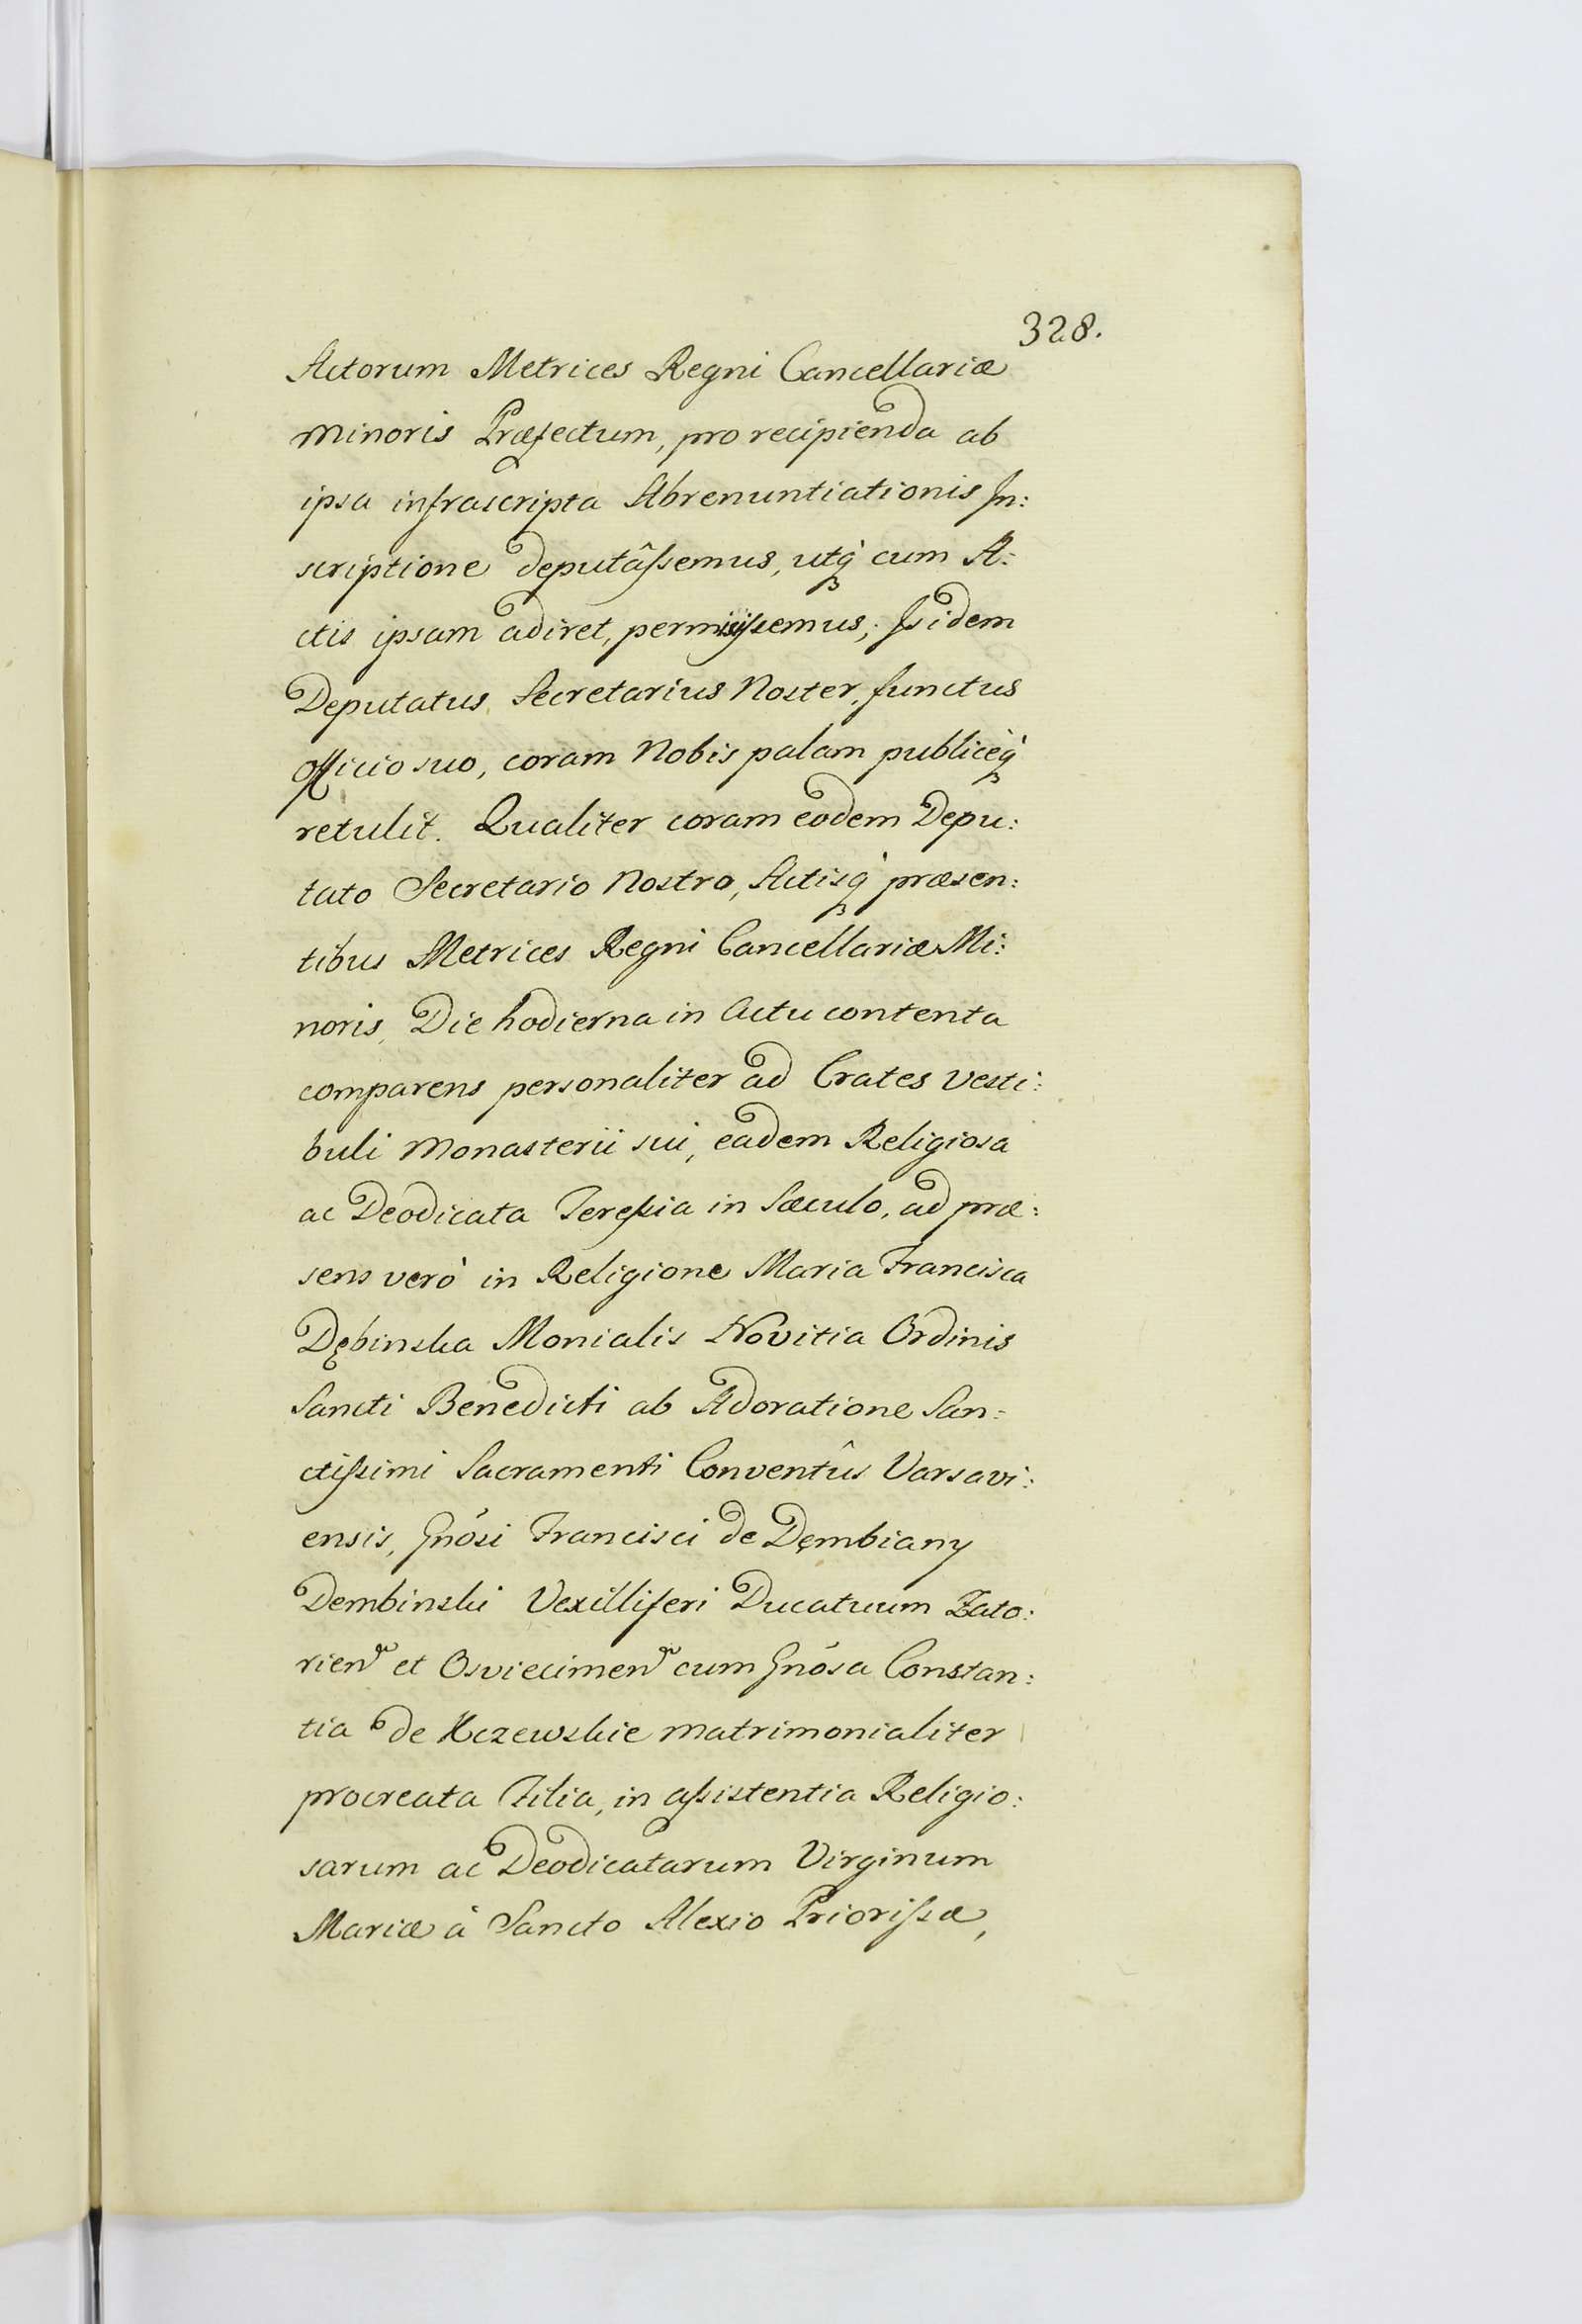 328.
Actorum Metrices Regni Cancellariæ
Minoris Præfectum, pro recipienda ab
ipsa infrascripta Abrenuntiationis In:
scriptione deputâſsemus, utq́ cum A:
ctis ipsam adiret, permisiſsemus; Is idem
Deputatus Secretarius Noster, functus
officio suo, coram Nobis palam publicèq́
retulit. Qualiter coram eodem Depu:
tato Secretario Nostro, Actisq́ præsen:
tibus Metrices Regni Cancellariæ Mi:
noris, Die hodierna in Actu contenta
comparens personaliter ad Crates Vesti:
buli Monasterii sui, eadem Religiosa
ac Deodicata Tereſsia in Sæculo, ad præ:
sens verò in Religione Maria Francisca
Dębinska Monialis Novitia Ordinis
Sancti Benedicti ab Adoratione San:
ctiſsimi Sacramenti Conventûs Varsavi:
ensis, Gnósi Francisci de Dęmbiany
Dembinski Vexilliferi Ducatuum Zato:
rien̄ et Osviecimen̄ cum Gnósa Constan:
tia de Kczewskie matrimonialiter
procreata Filia, in aſsistentia Religio:
sarum ac Deodicatarum Virginum
Mariæ à Sancto Alexio Prioriſsæ,